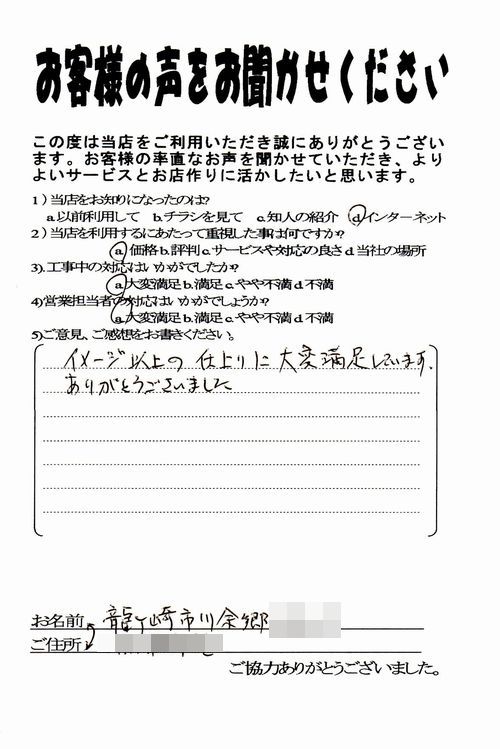 お客様の声をお聞かせください
この度は当店をご利用いただき誠にありがとうござい
ます。お客様の率直なお声を聞かせていただき、より
よいサービスとお店作りに活かしたいと思います。
1）当店をお知りになったのは？
a.以前利用して　b.チラシを見て　c.知人の紹介　d.インターネット
2）当店を利用するにあたって重視した事は何ですか？
a.価格 b.評判 c.サービスや対応の良さ d.当社の場所
3).工事中の対応はいかがでしたか？
a.大変満足 b.満足 c.やや不満 d.不満
4)営業担当者の対応はいかがでしょうか？
a.大変満足 b.満足 c.やや不満 d.不満
5)ご意見、ご感想をお書きください。
イメージ以上の 仕上りに 大変満足しています.
ありがとうございました
お名前 龍ヶ崎市川余郷
ご住所
ご協力ありがとうございました。